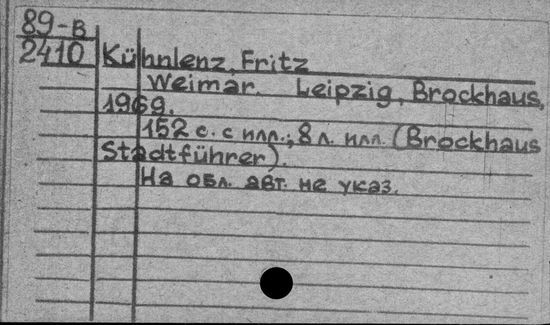 89-В
2410
Kühnlenz, Fritz
Weimar. Leipzig, Brockhaus,
1969.
152 с. с илл.; 8 л. илл. (Brockhaus
Stadtführer).
На обл. авт. не указ.